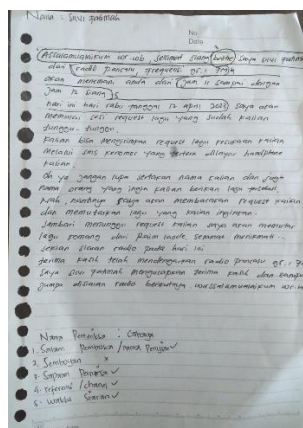 Nama : Silvi patmah
No
Date
Assalamualaikum wr wb, selamat siang saya silvi patmah
dari radio pancatu, frequensi 95.1
akan menemani anda dari jam 11 sampai dengan
jam 12 siang
hari ini hari rabu tanggal 12 april saya akan
membuka sesi request lagu yang sudah kalian
tunggu-tunggu.
kalian bisa mengirimkan request lagu kesukaan kalian
melalui sms ke nomor yang tertera dilayar handphone
kalian.
Oh ya jangan lupa sertakan nama kalian dan juga
nama orang yang ingin kalian berikan lagu tersebut.
Nah, nantinya saya akan membacakan request kalian
dan memutarkan lagu yang kalian inginkan.
Sambari menunggu request kalian saya akan memutar
lagu komang dari Raim laode, selamat menikmati.
Sekian siaran radio pada hari ini
terima kasih telah mendengarkan radio pancatu 95.1
Saya silvi patmah mengucapkan terima kasih dan sampai
jumpa disiaran radio berikutnya wassalamualaikum wr.wb
Nama Pemeriksa :
1. Salam Pembuka / nama Penyiar ✓
2. Semboyan x
3. Sapaan ✓
4. frekuensi / channel ✓
5. Waktu siaran ✓